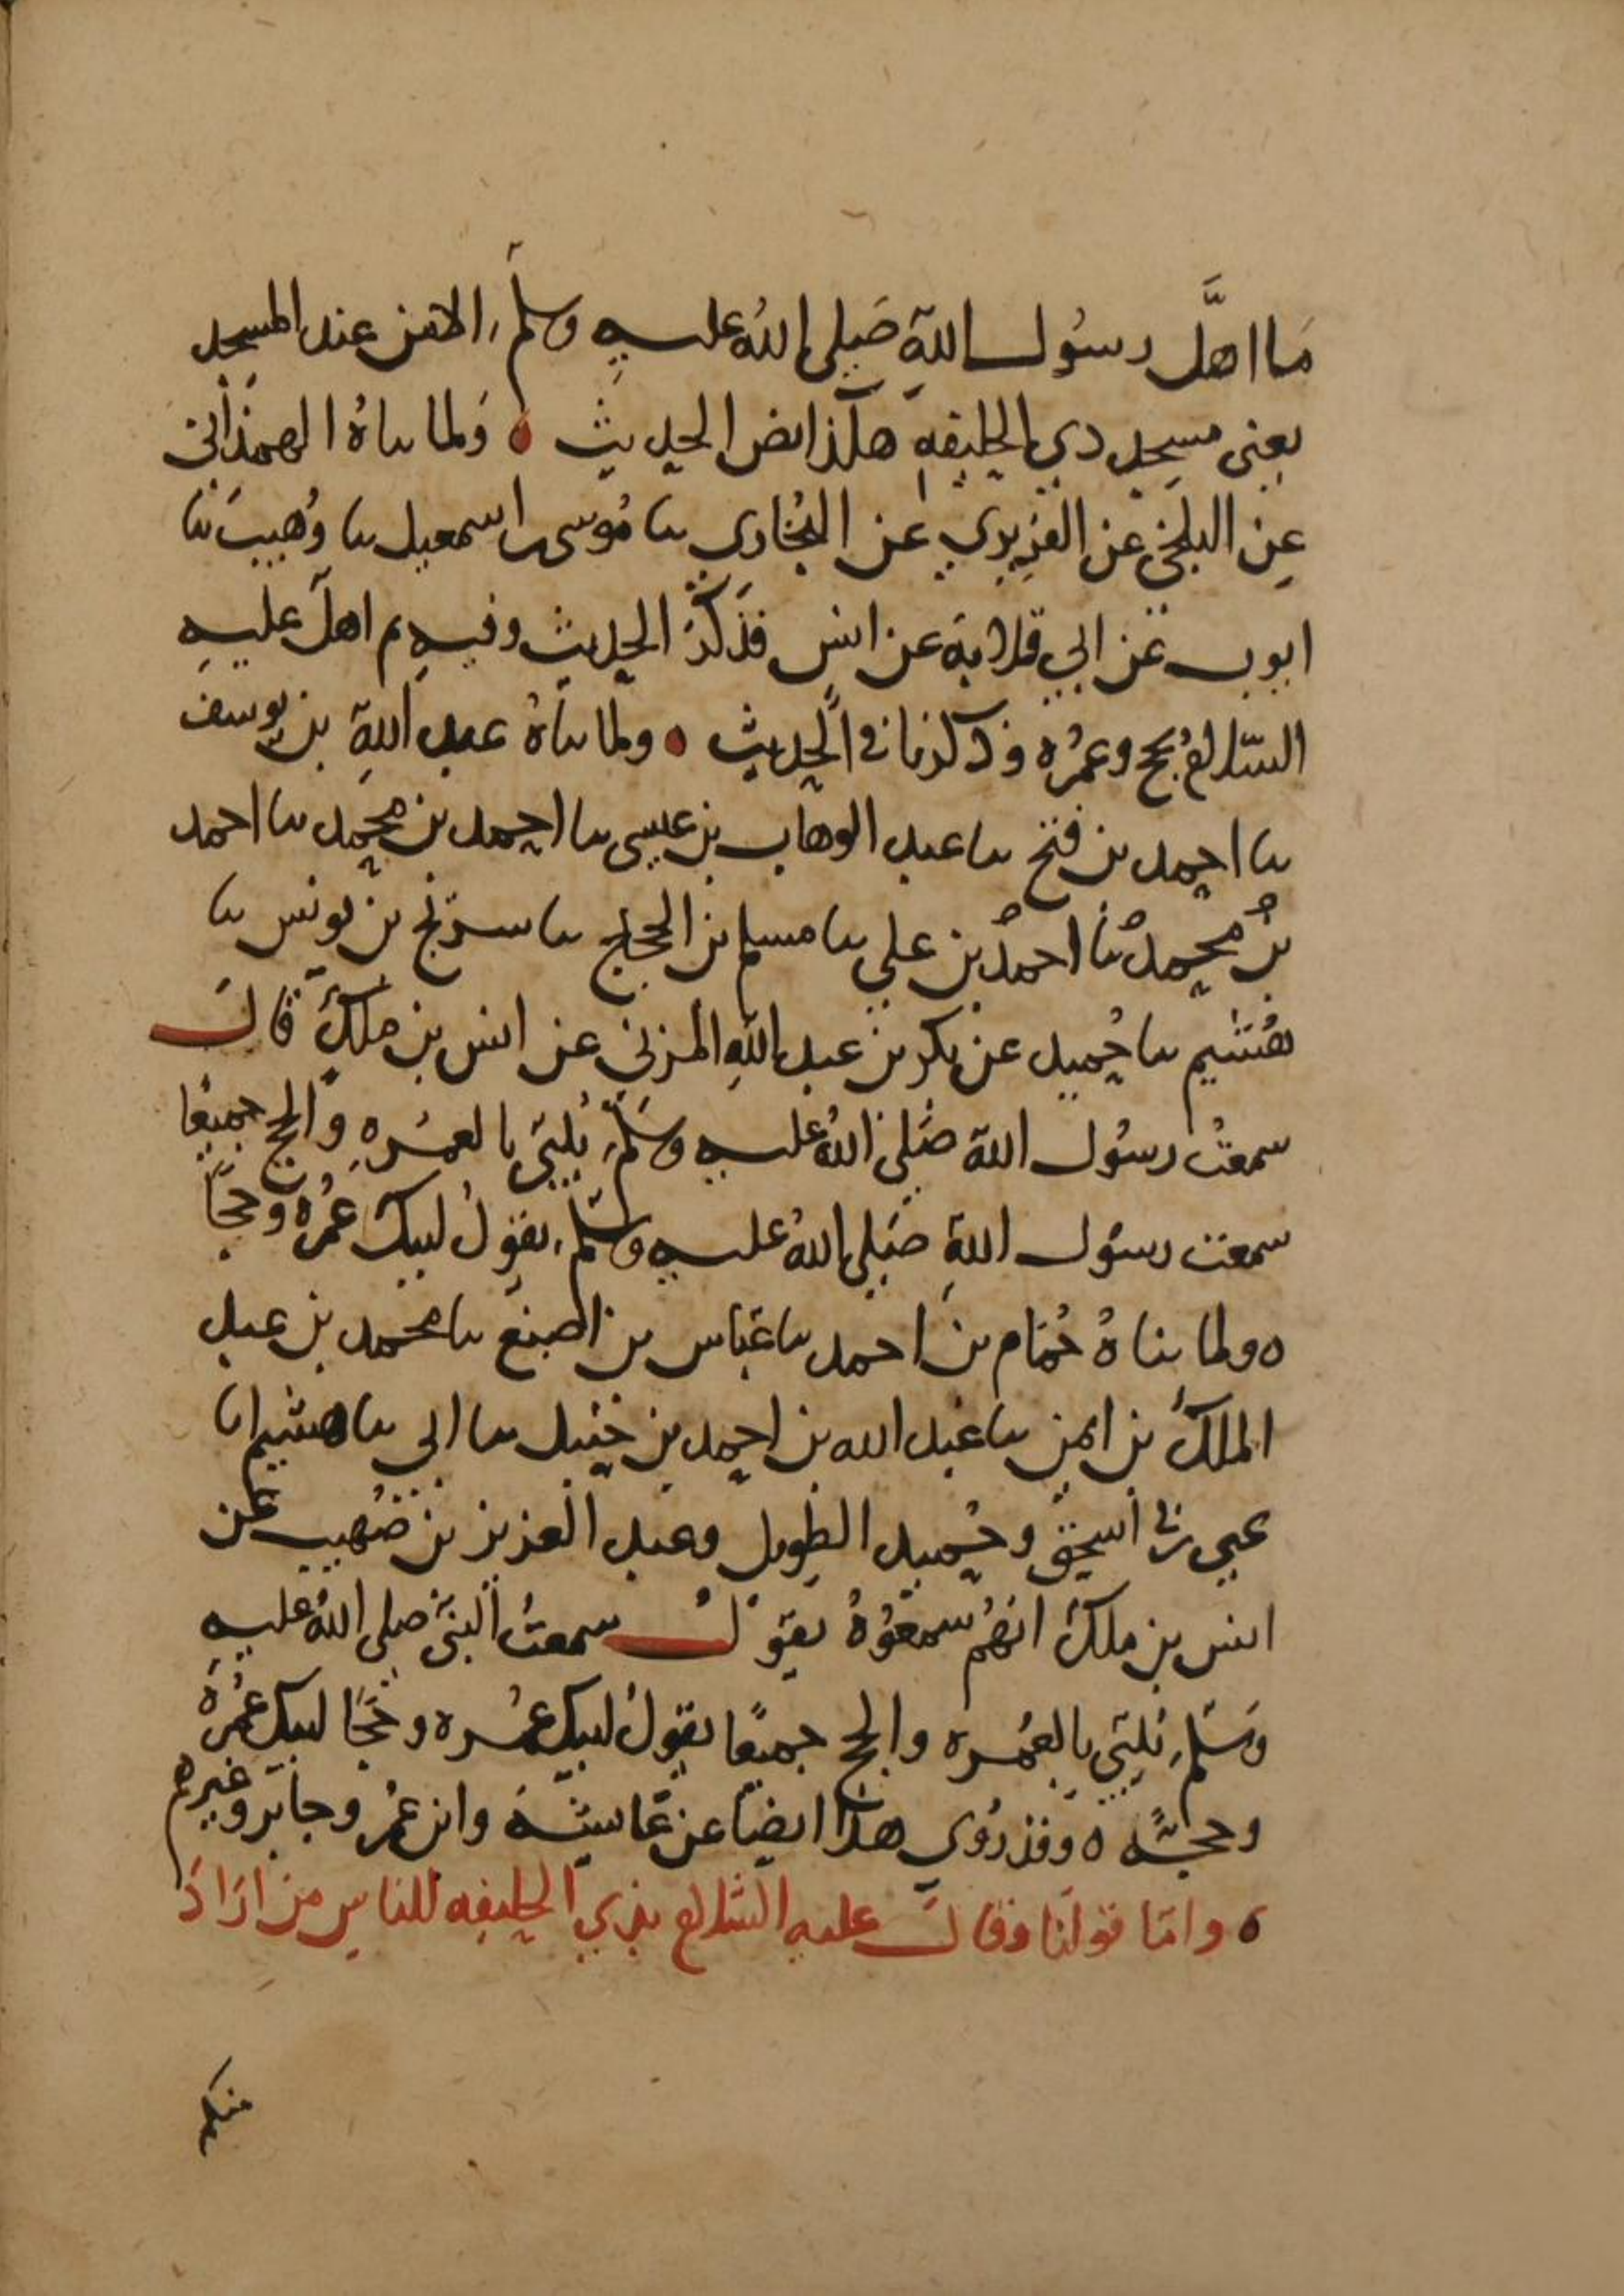 ما اهلَّ رسول الله صلى الله عليه وسلم الا من عند المسجد
يعني مسجد ذي الحليفه هكذا نص الحديث ه ولما ثناه الهمذاني
عن البلخي عن الفربري عن البخاري ثنا موسى بن اسمعيل ثنا وهيب ثنا
ايوب عن ابي قلابة عن انس فذكر الحديث وفيه ثم اهل عليه
السلام بحج وعمره وذكرنا في الحديث ه ولما ثناه عبد الله بن يوسف
ثنا احمد بن فتح ثنا عبد الوهاب بن عيسى ثنا احمد بن محمد ثنا احمد
بن محمد ثنا احمد بن علي ثنا مسلم بن الحجاج ثنا سريج بن يونس ثنا
هشيم ثنا حميد عن بكر بن عبد الله المزني عن انس بن ملك قال
سمعت رسول الله صلى الله عليه وسلم يلبي بالعمره والحج جميعا
سمعت رسول الله صلى الله عليه وسلم يقول لبيك عمره وحجًا
ه ولما ثناه حمام بن احمد ثنا عباس بن اصبغ ثنا محمد بن عبد
الملك بن ايمن ثنا عبد الله بن احمد بن حنبل ثنا ابي ثنا هشيم انا
يحيى بن ابي اسحق وحميد الطويل وعبد العزيز بن صهيب عن
انس بن ملك انهم سمعوه يقول سمعت النبي صلى الله عليه
وسلم يلبي بالعمره والحج جميعًا يقول لبيك عمره وحجًا لبيك عمرة
وحجًا ه وقد روي هذا ايضا عن عايشة وابن عمر وجابر وغيرهم
ه واما قولنا وقال عليه السلام بذي الحليفه للناس من اراد
منكم